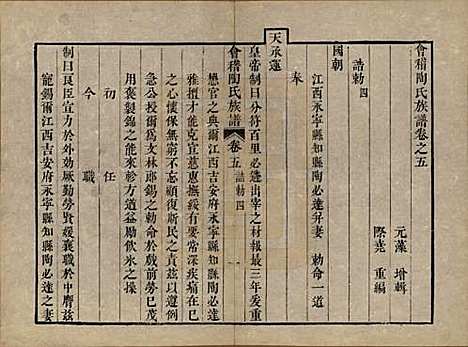 會稽陶氏族譜卷之五
元藻 增輯
際堯 重編
誥勅四
國朝
江西永寧縣知縣陶必達并妻 勅命一道
奉
天承運
皇帝制曰分符百里必遴出宰之材報最三年爰重
會稽陶氏族譜 卷五 誥勅 四
懋官之典爾江西吉安府永寧縣知縣陶必達
雅擅才能克宣惠撫緩有方早深疾痛在已
之心懷保無窮不忘顧復斯民之責茲以遵例
急公投爾為文林郎錫之勅命於戲前勞已茂
用褒製錦之能來軫方遒益勵飲冰之操
初 任
今 職
制曰良臣宣力於外効厥勤勞賢媛襄職於中膺茲
寵錫爾江西吉安府永寧縣知縣陶必達之妻